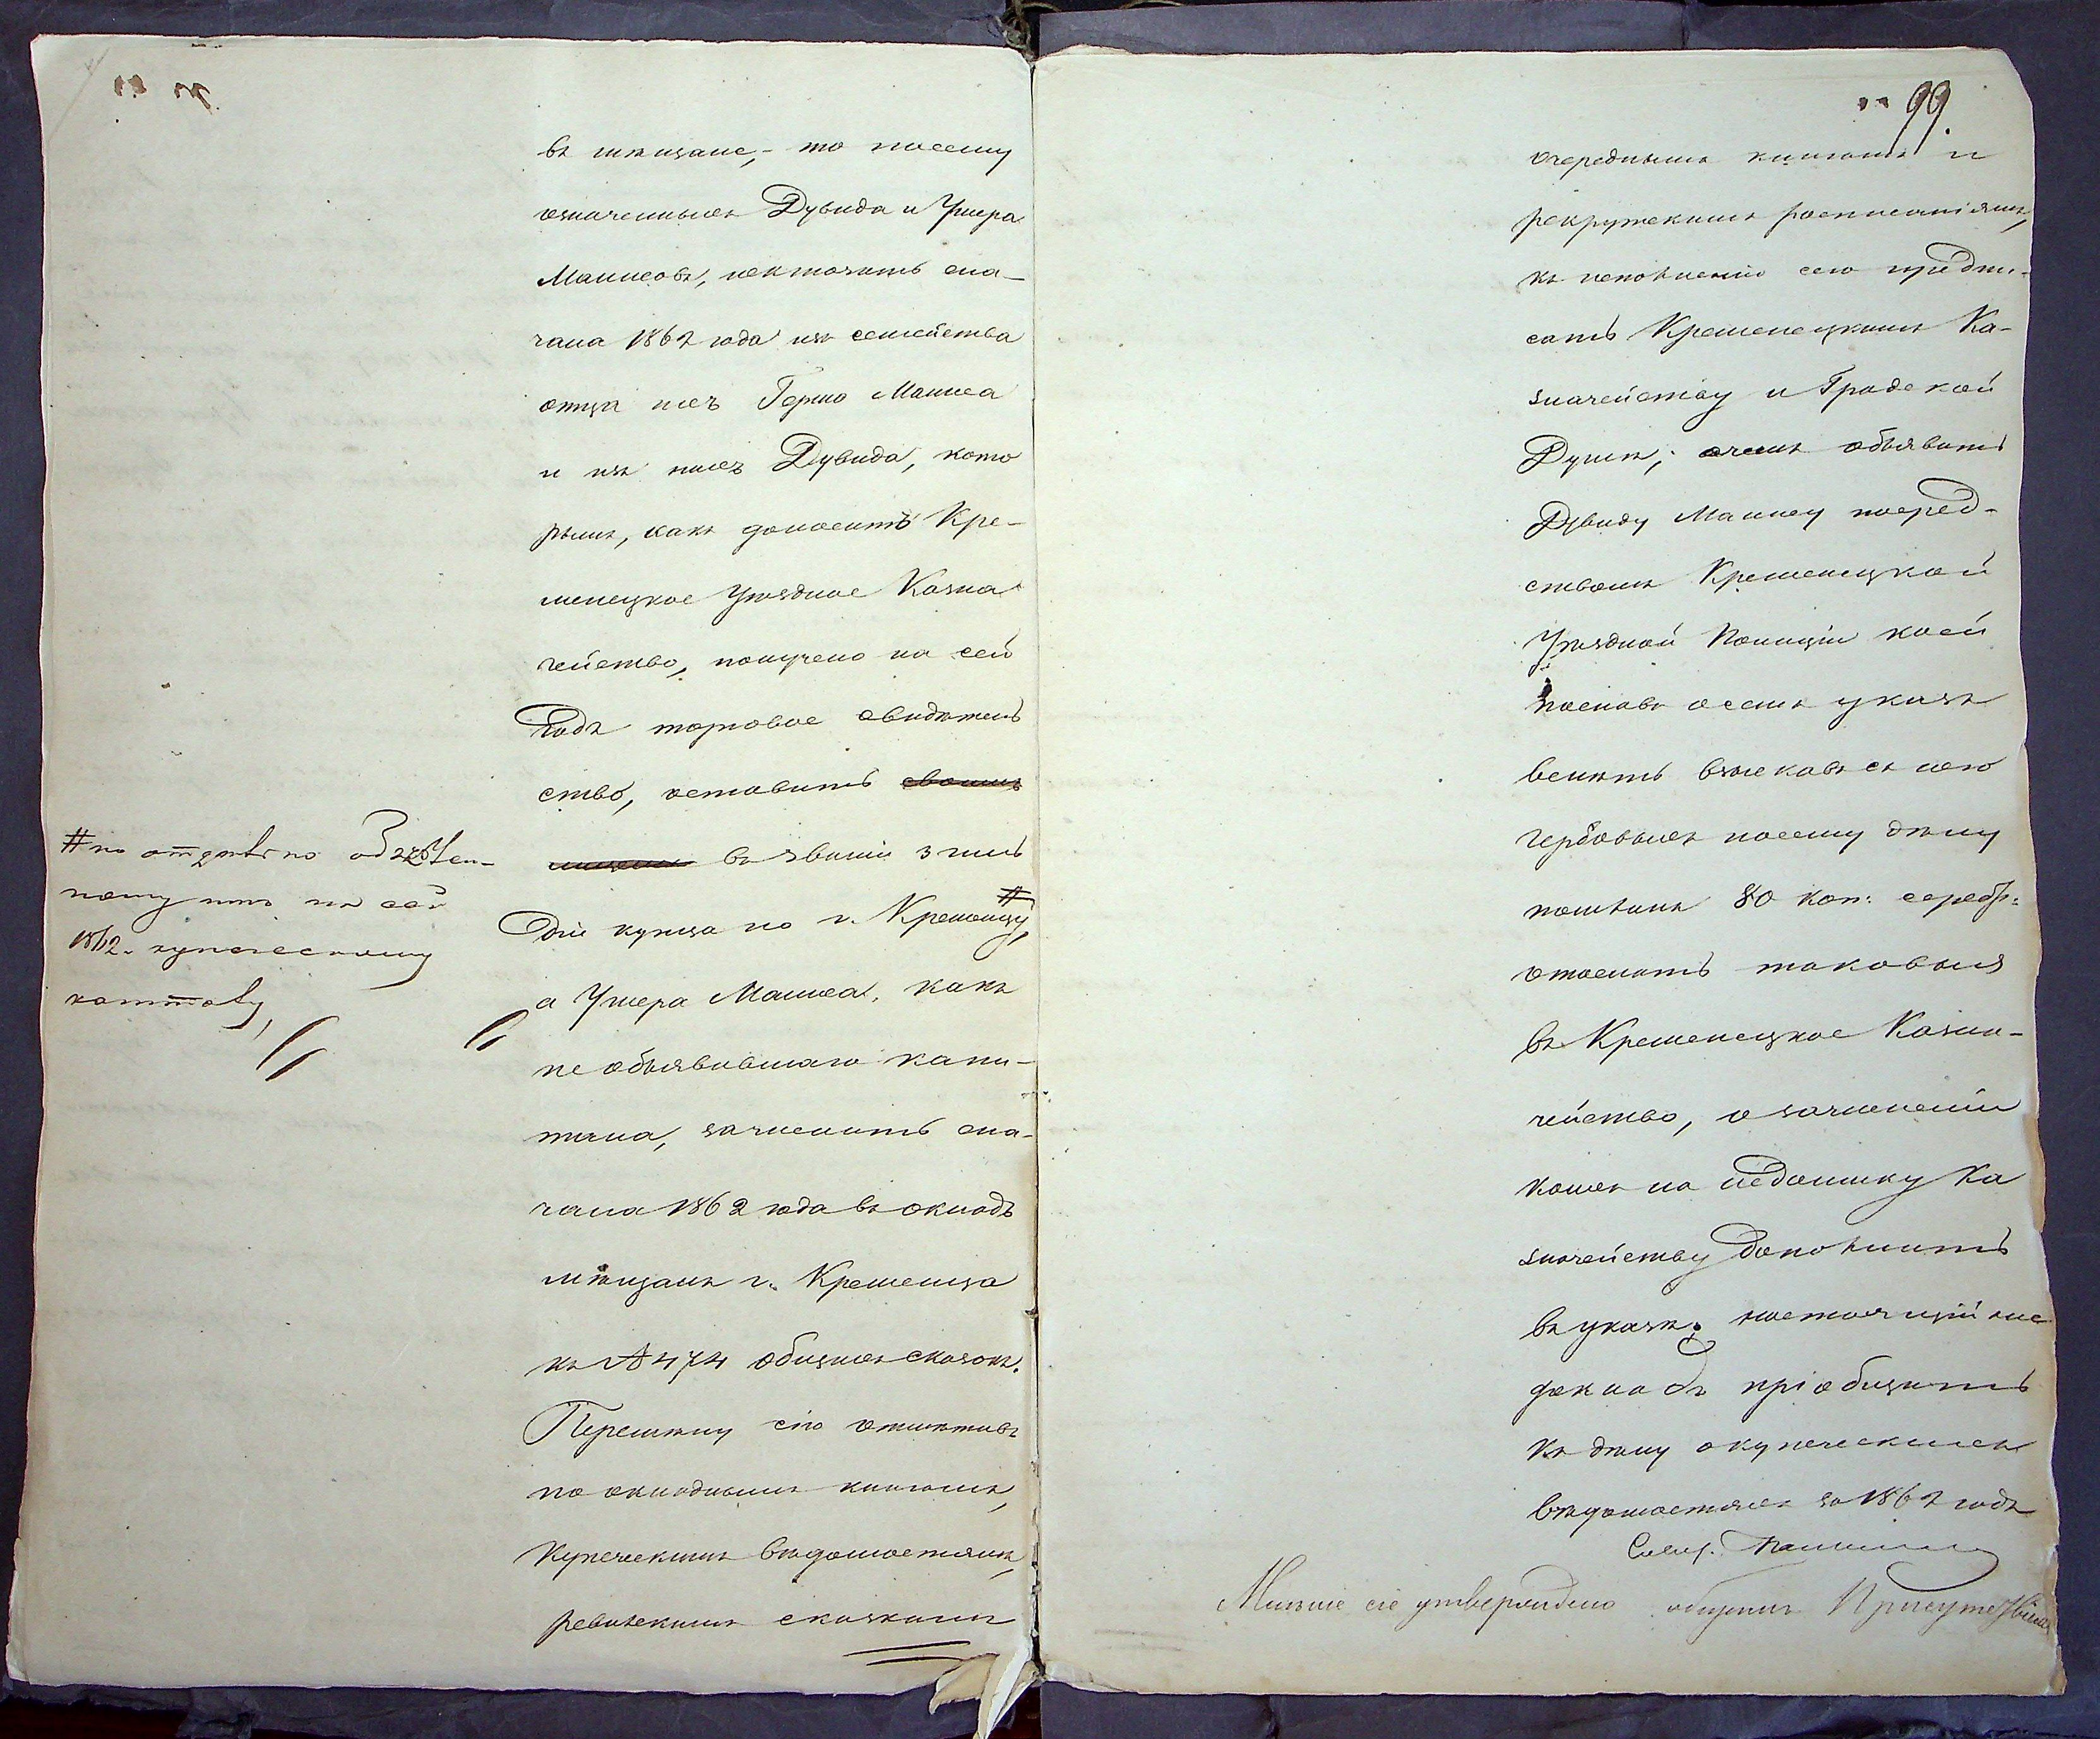 въ мѣщане, – то посему
означенныхъ Дувида и Ушера
Маннсовъ, исключить сна-
чала 1862 года изъ семейства
отца ихъ Герша Маннса
и изъ нихъ Дувида, кото
рымъ, какъ доноситъ Кре-
менецкое Уѣздное Казна
чейство, получено на сей
годъ торговое свидѣтель
ство, оставить своимъ
въ званіи 3 гиль
діи купца по г. Кременцу, #
а Ушера Маннса, какъ
не объявившаго капи-
тала, зачислить сна-
чала 1862 года въ окладъ
мѣщанъ г. Кременца
къ № 474 общихъ сказокъ.
Перемѣну сію отмѣтивъ
по окладнымъ книгамъ,
Купеческимъ вѣдомостямъ,
ревизскимъ сказкамъ
# по отдѣльно объявлен-
ному имъ на сей
1862 г. купеческому
капиталу,
99.
очереднымъ книгамъ и
рекрутскимъ росписаніямъ,
къ исполненію сего предпи-
сать Кременецкимъ Ка-
значейству и Градской
Думѣ; о чемъ объявить
Дувиду Маннсу посред-
ствомъ Кременецкой
Уѣздной Полиціи коей
пославъ о семъ указъ
велѣть взыскавъ съ него
гербовыхъ по сему дѣлу
пошлинъ 80 коп: серебр:
отослать таковыя
въ Кременецкое Казна-
чейство, о зачисленіи
коихъ на недоимку Ка
значейству дополнить
въ указѣ. настоящій же
докладъ пріобщить
къ дѣлу о купеческихъ
вѣдомостяхъ за 1862 годъ
Мнѣніе сіе утверждено общимъ Присутствіемъ